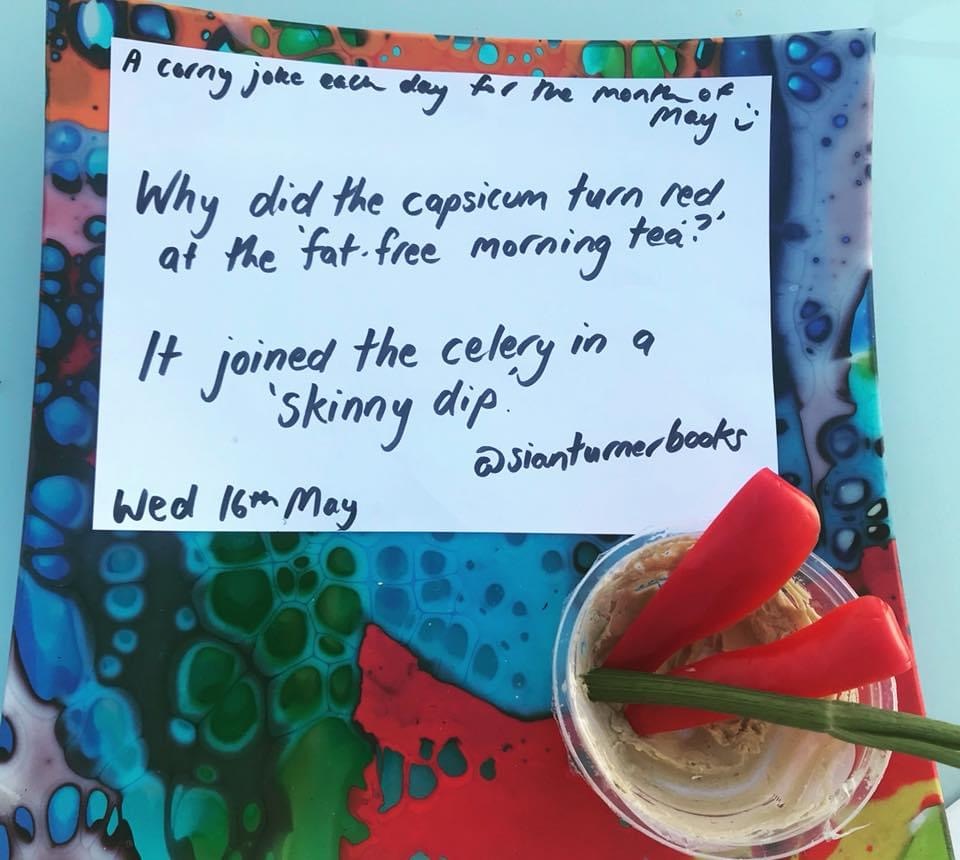 A corny joke each day for the month of
May :)
Why did the capsicum turn red
at the 'fat-free morning tea?'
It joined the celery in a
'skinny dip'.
@sianturnerbooks
Wed 16th May